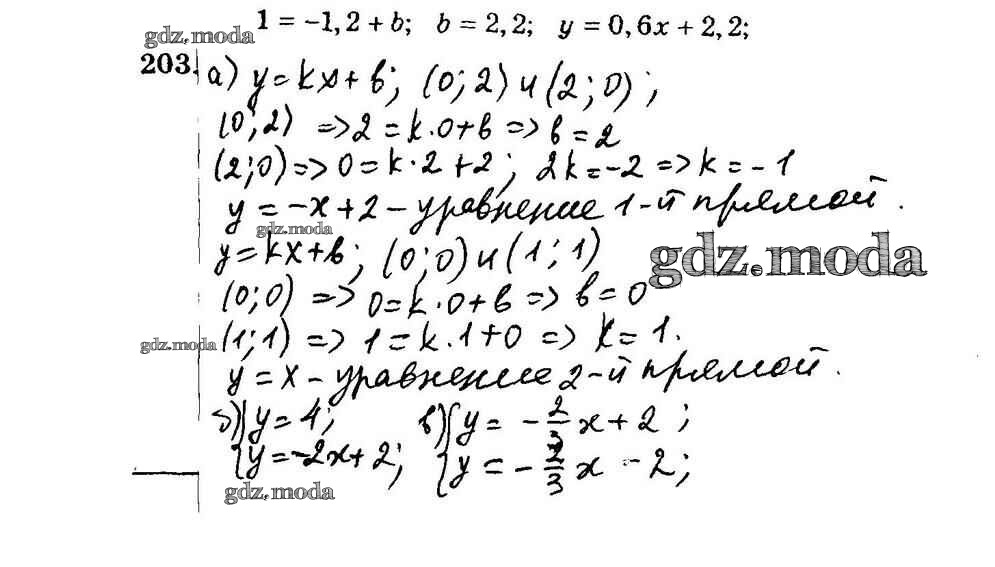 1 = –1,2 + b; b = 2,2; y = 0,6x + 2,2;
gdz.moda
203. а) y = kx + b; (0; 2) и (2; 0);
(0; 2) => 2 = k·0 + b => b = 2
(2; 0) => 0 = k·2 + 2; 2k = -2 => k = -1
y = -x + 2 – уравнение 1-й прямой.
gdz.moda
y = kx + b; (0; 0) и (1; 1)
gdz.moda
(0; 0) => 0 = k·0 + b => b = 0
(1; 1) => 1 = k·1 + 0 => k = 1.
gdz.moda
y = x – уравнение 2-й прямой.
б) { y = 4; в) { y = -2/3 x + 2;
y = -2x + 2; y = -2/3 x - 2;
gdz.moda